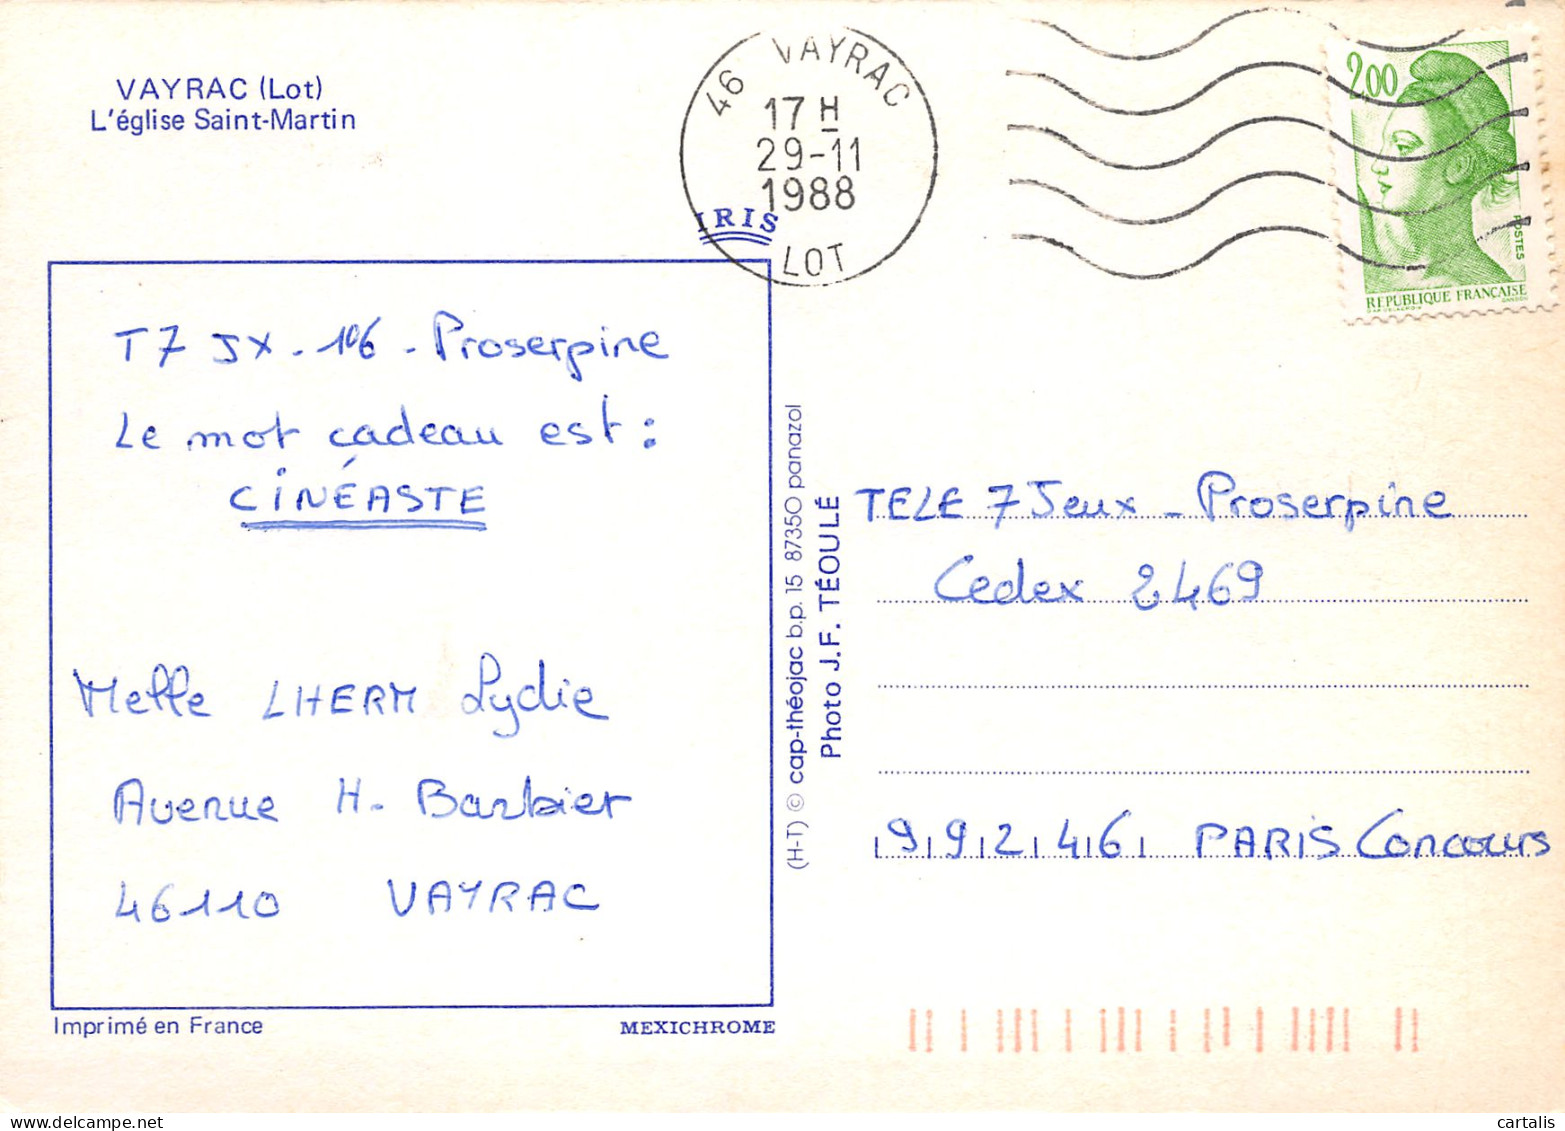 VAYRAC (Lot)
L'église Saint-Martin
46 VAYRAC
17 H
29-11
1988
LOT
IRIS
2,00
POSTES
REPUBLIQUE FRANÇAISE
T7 JX - 106 - Proserpine
Le mot cadeau est :
CINÉASTE
Melle LHERM Lydie
Avenue H. Barbier
46110 VAYRAC
Imprimé en France
MEXICHROME
(H-T) © cap-théojac b.p. 15 87350 panazol
Photo J.F. TÉOULÉ
TELE 7 Jeux - Proserpine
Cedex 2469
99246 PARIS Concours
www.cartalis.com